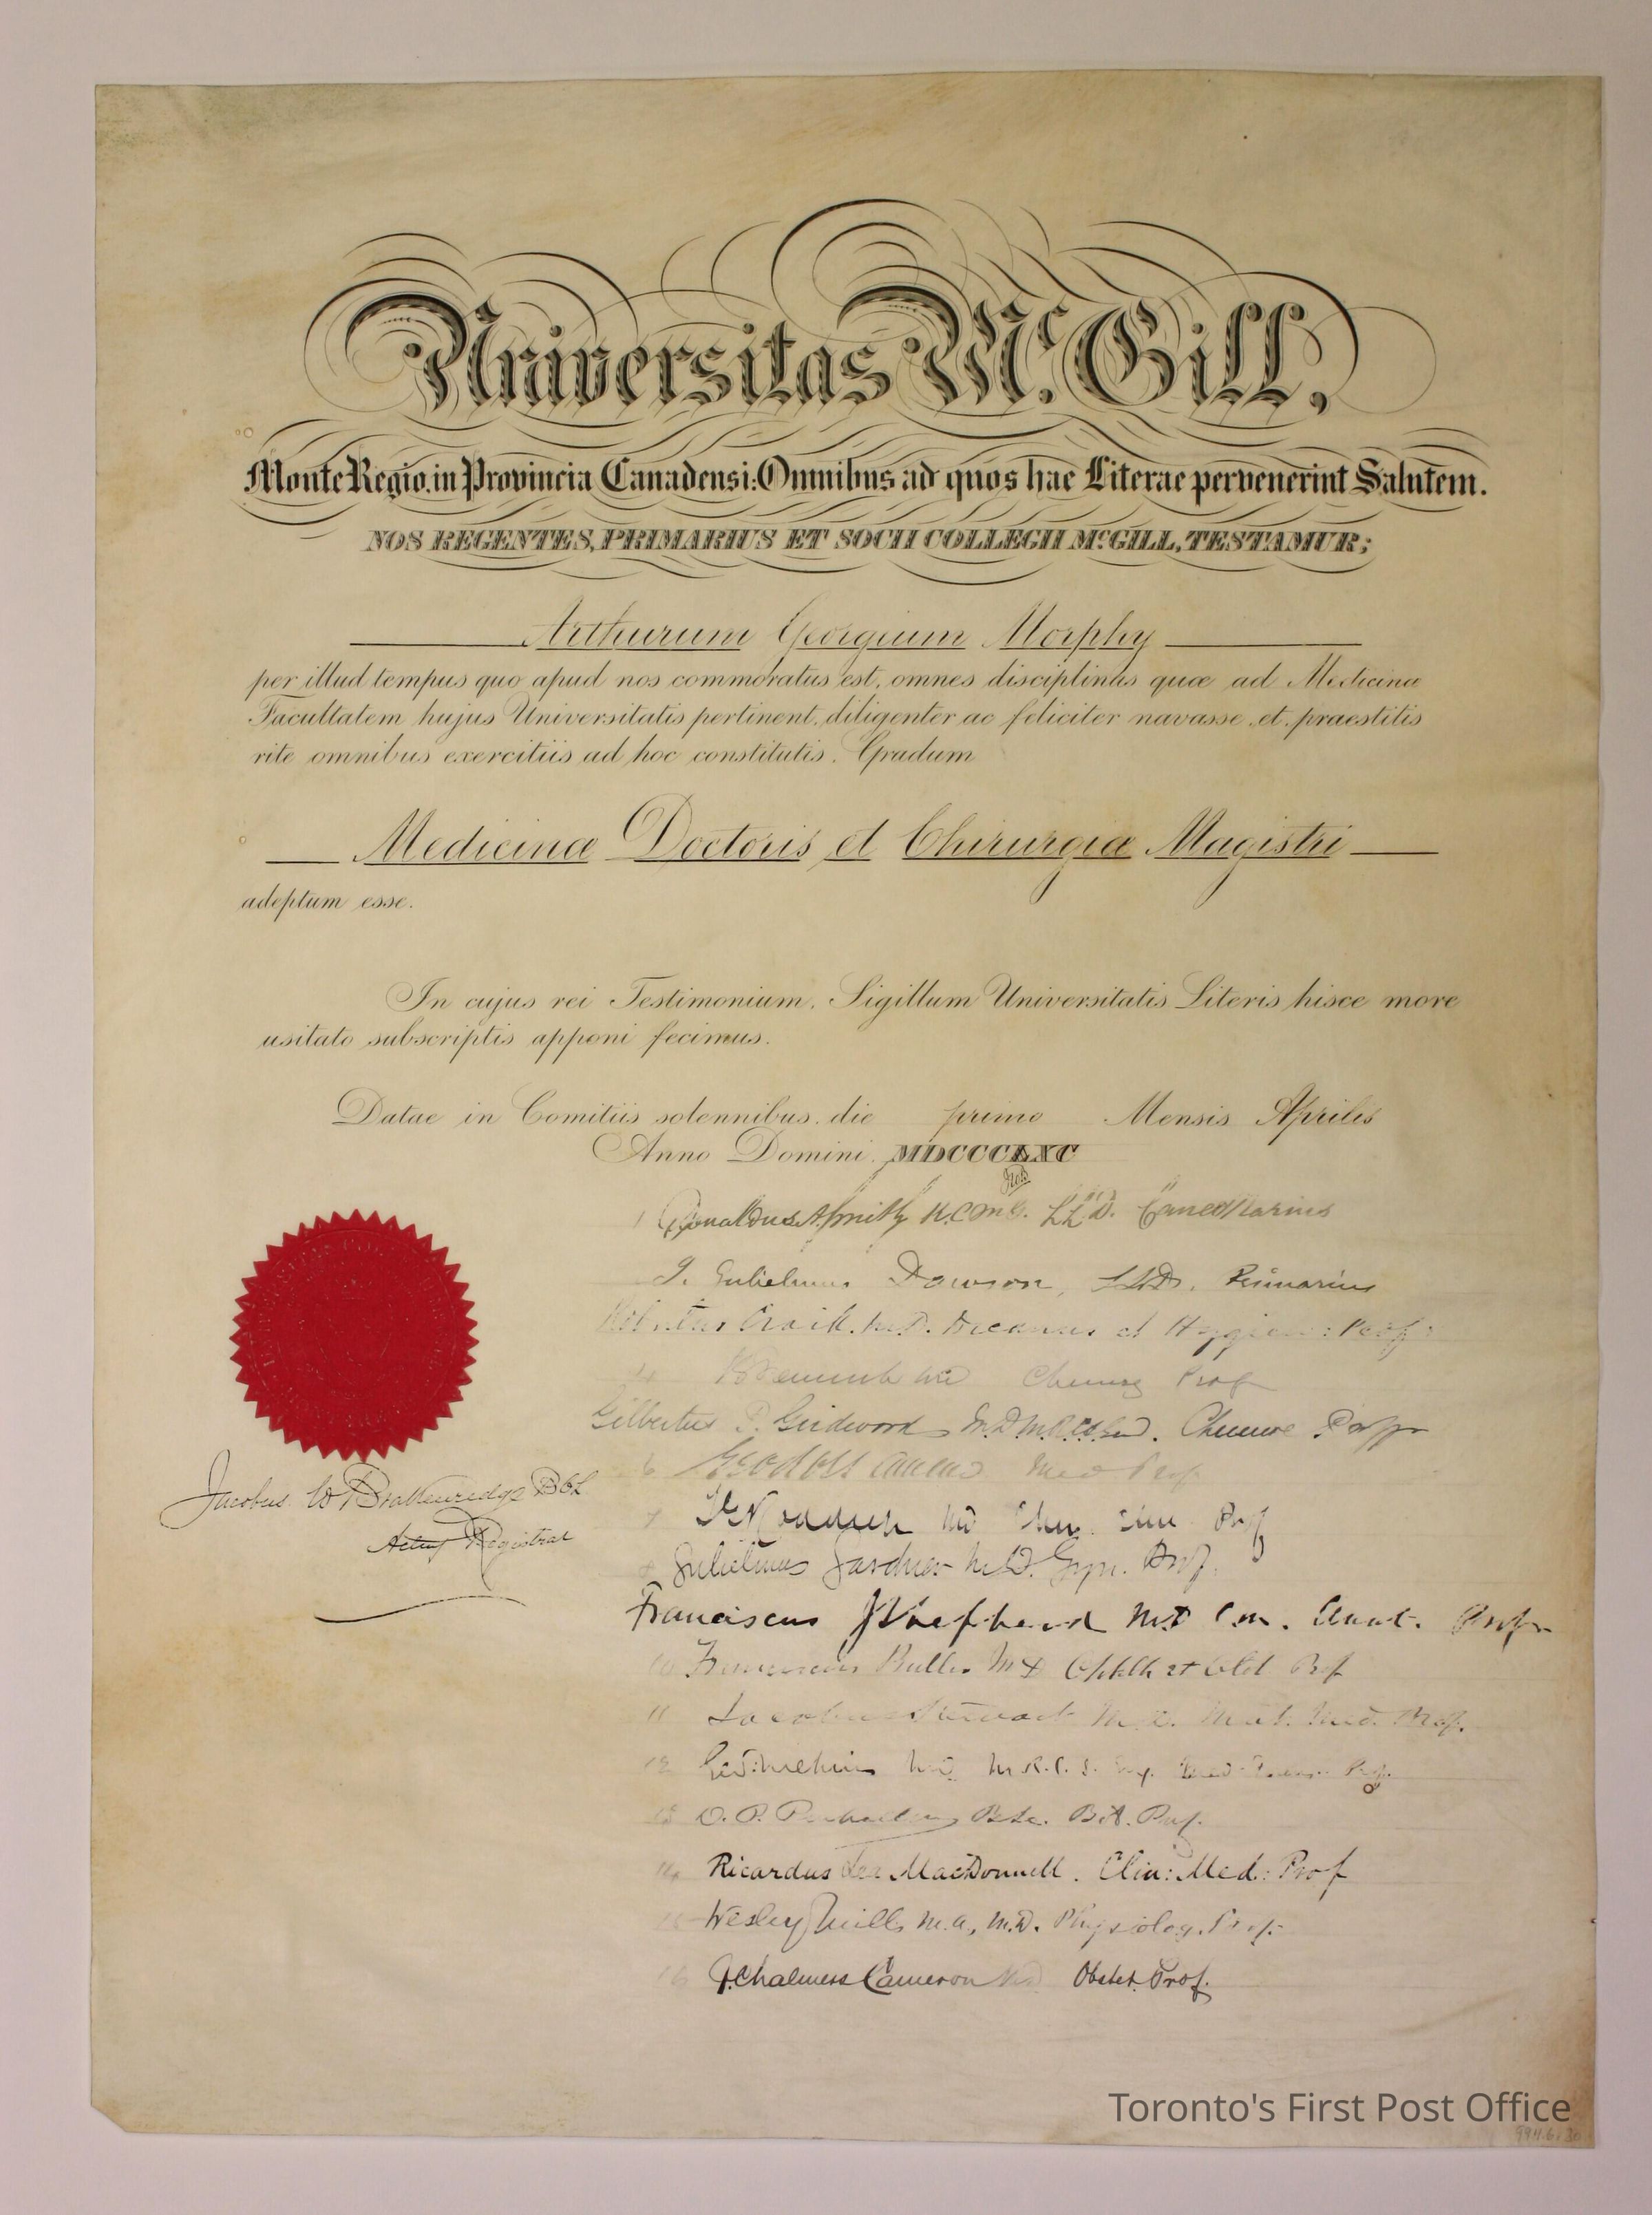 Universitas McGill,
Monte Regio, in Provincia Canadensi: Omnibus ad quos hae Literae pervenerint Salutem.
NOS REGENTES, PRIMARIUS ET SOCII COLLEGII McGILL, TESTAMUR;
Arthurum Georgium Morphy
per illud tempus quo apud nos commoratus est, omnes disciplinas quæ ad Medicinæ
Facultatem hujus Universitatis pertinent, diligenter ac feliciter navasse, et, praestitis
rite omnibus exercitiis ad hoc constitutis. Gradum
Medicinæ Doctoris et Chirurgiæ Magistri
adeptum esse.
In cujus rei Testimonium, Sigillum Universitatis Literis hisce more
usitato subscriptis apponi fecimus.
Datae in Comitiis solennibus, die primo Mensis Aprilis
Anno Domini MDCCCLXC
1 Donaldus A Smith K.C.M.G. LL.D. Cancellarius
J. Gulielmus Dawson, LLD. Primarius
Robertus Craik, M.D. Decanus et Hygien: Prof:
4 MD Prof
Gilbertus P. Girdwood M.D. Chemiæ Prof
6 Geo Ross Med Prof
Jacobus W Brakenridge BCL
Acting Registrar
7 MD Prof
8 Gulielmus Gardner M.D. Gyn. Prof.
Franciscus J Shepherd MD C.M. Anat. Prof
10 Franciscus Buller MD Ophth et Otol Prof
11 Jacobus Stewart M.D. Mat. Med. Prof.
12 MD M.R.C.S. Prof.
13 D. P. Penhallow B.Sc. Bot. Prof.
14 Ricardus Lea MacDonnell. Clin: Med: Prof
15 Wesley Mills M.A, M.D. Physiolog. Prof.
16 J. Chalmers Cameron MD Obstet. Prof.
Toronto's First Post Office